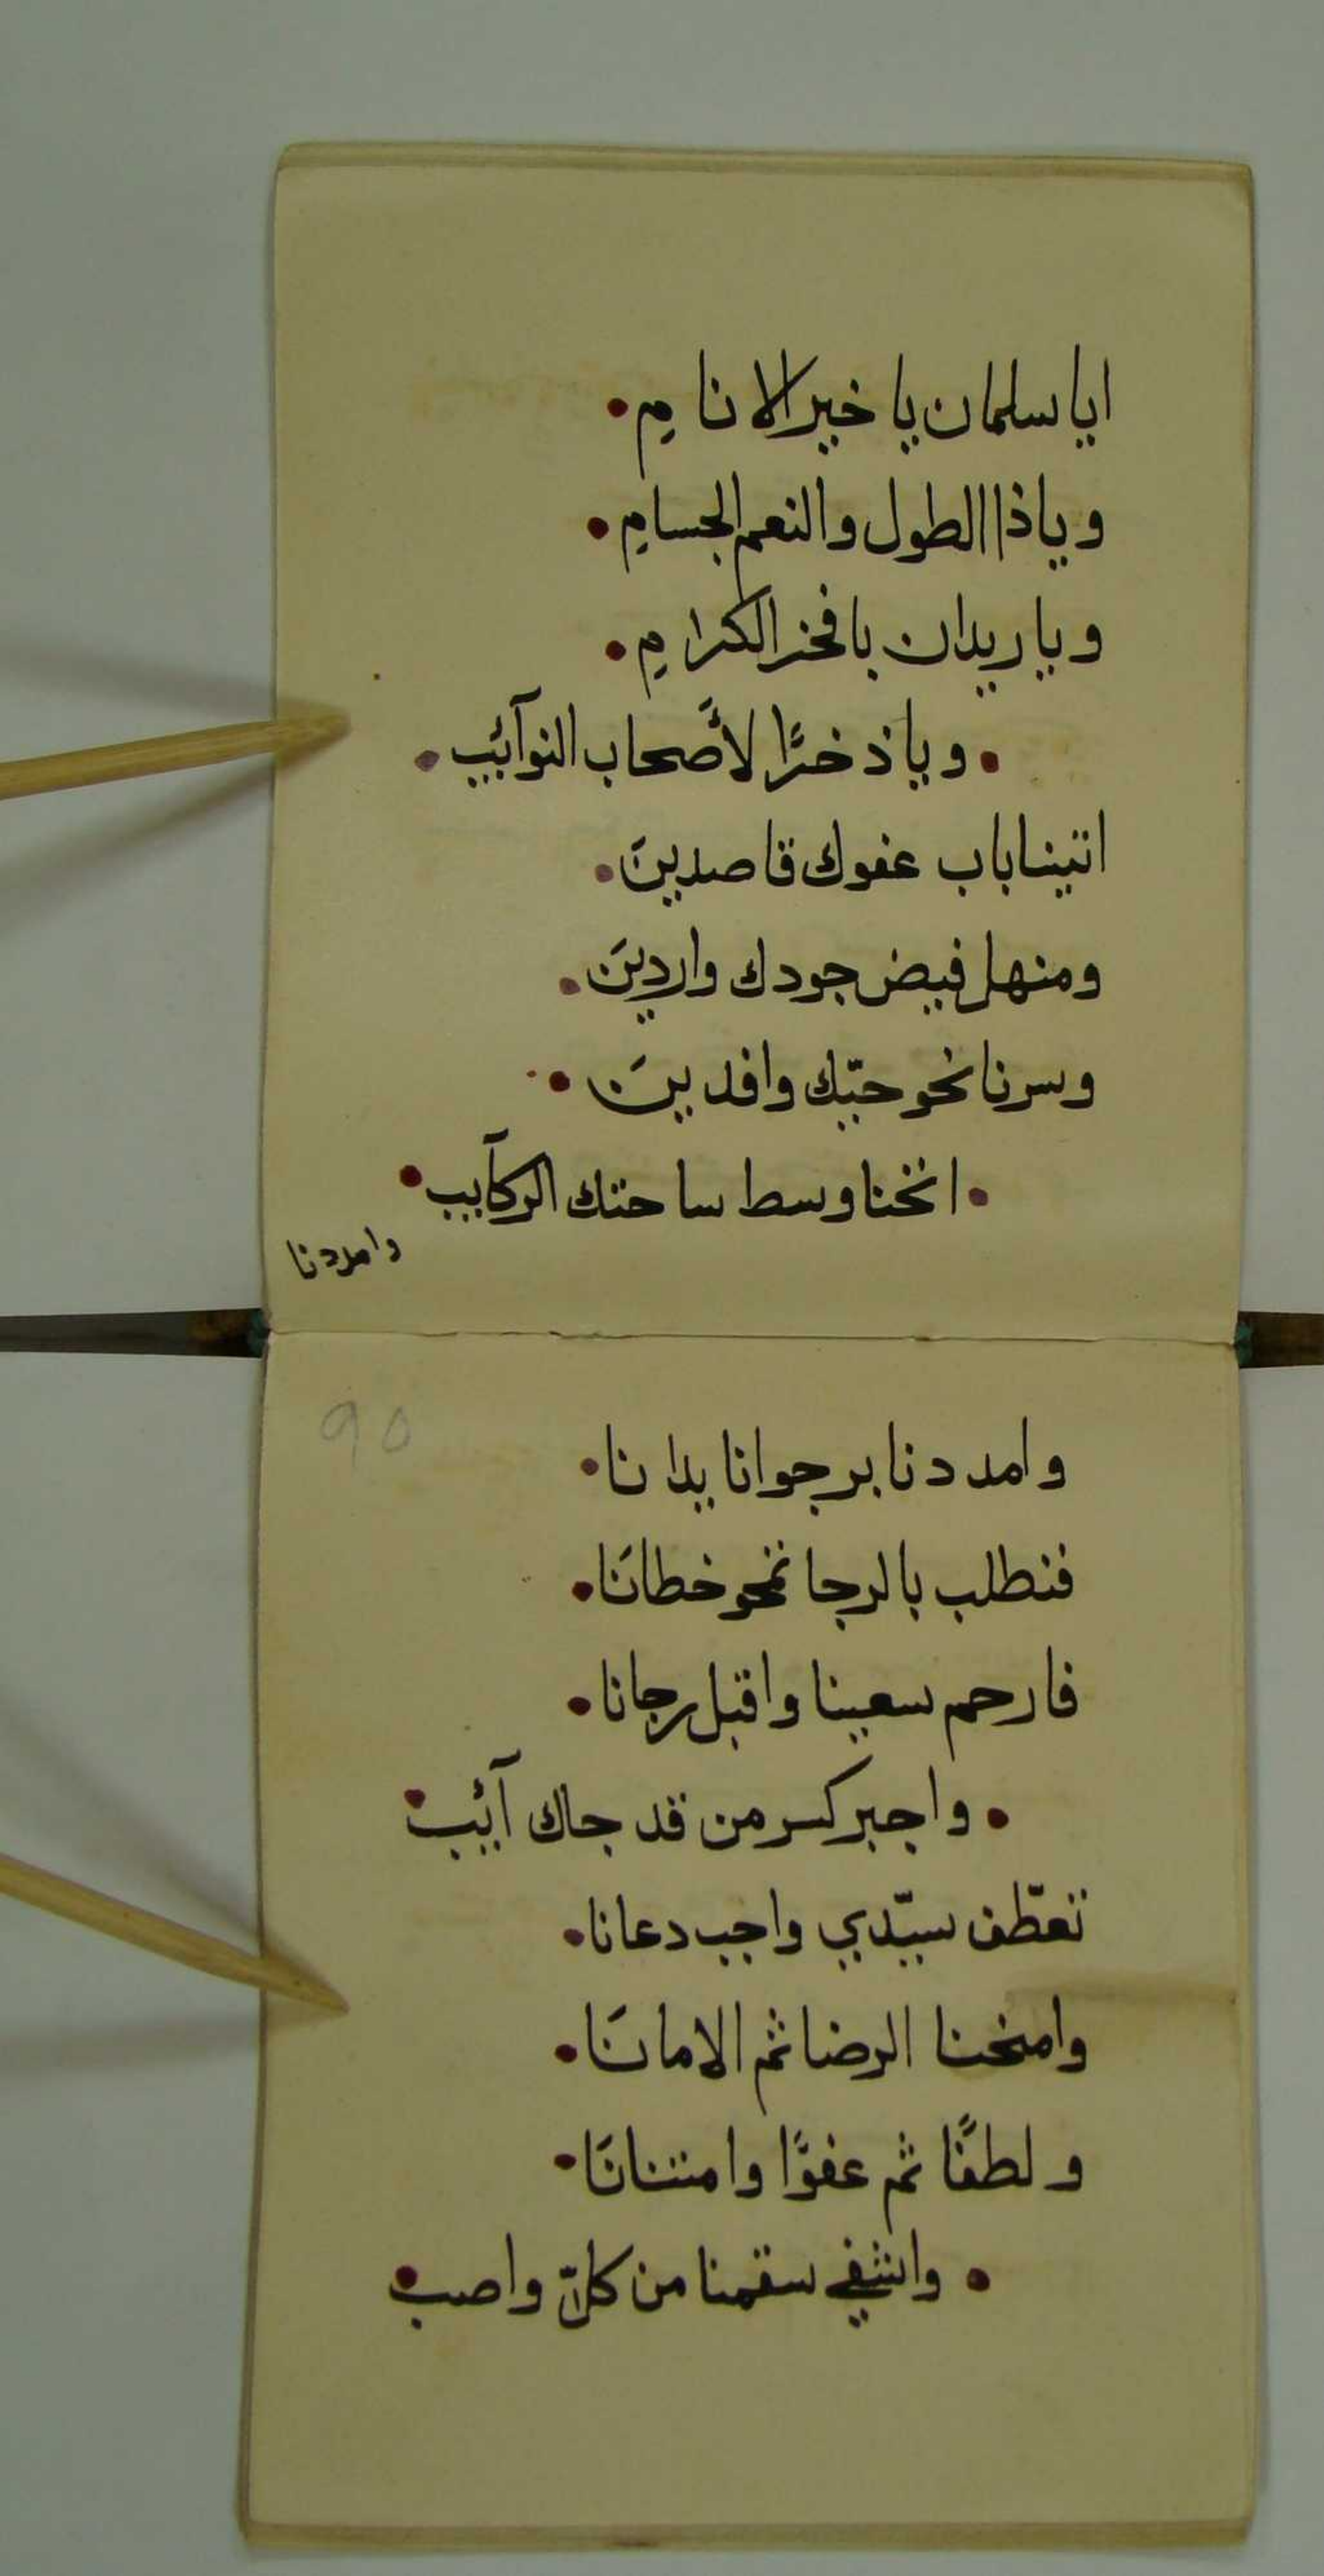 ايا سلمان يا خير الانامِ
وياذا الطول والنعم الجسامِ
ويا ريدان يا فخر الكرامِ
ويا ذخرًا لأصحاب النوآئب
اتينا باب عفوك قاصدينَ
ومنهل فيض جودك واردينَ
وسرنا نحو حبّك وافدينَ
انخنا وسط ساحتك الركآيب
وامددنا
90
وامددنا برجوانا يدانا
فنطلب بالرجا تمحو خطانَا
فارحم سعينا واقبل رجانا
واجبر كسر من قد جاك آئب
تعطّف سيّدي واجب دعانا
وامنحنا الرضا ثم الامانَا
ولطفًا ثم عفوًا وامتنانَا
واشفي سقمنا من كلّ واصب